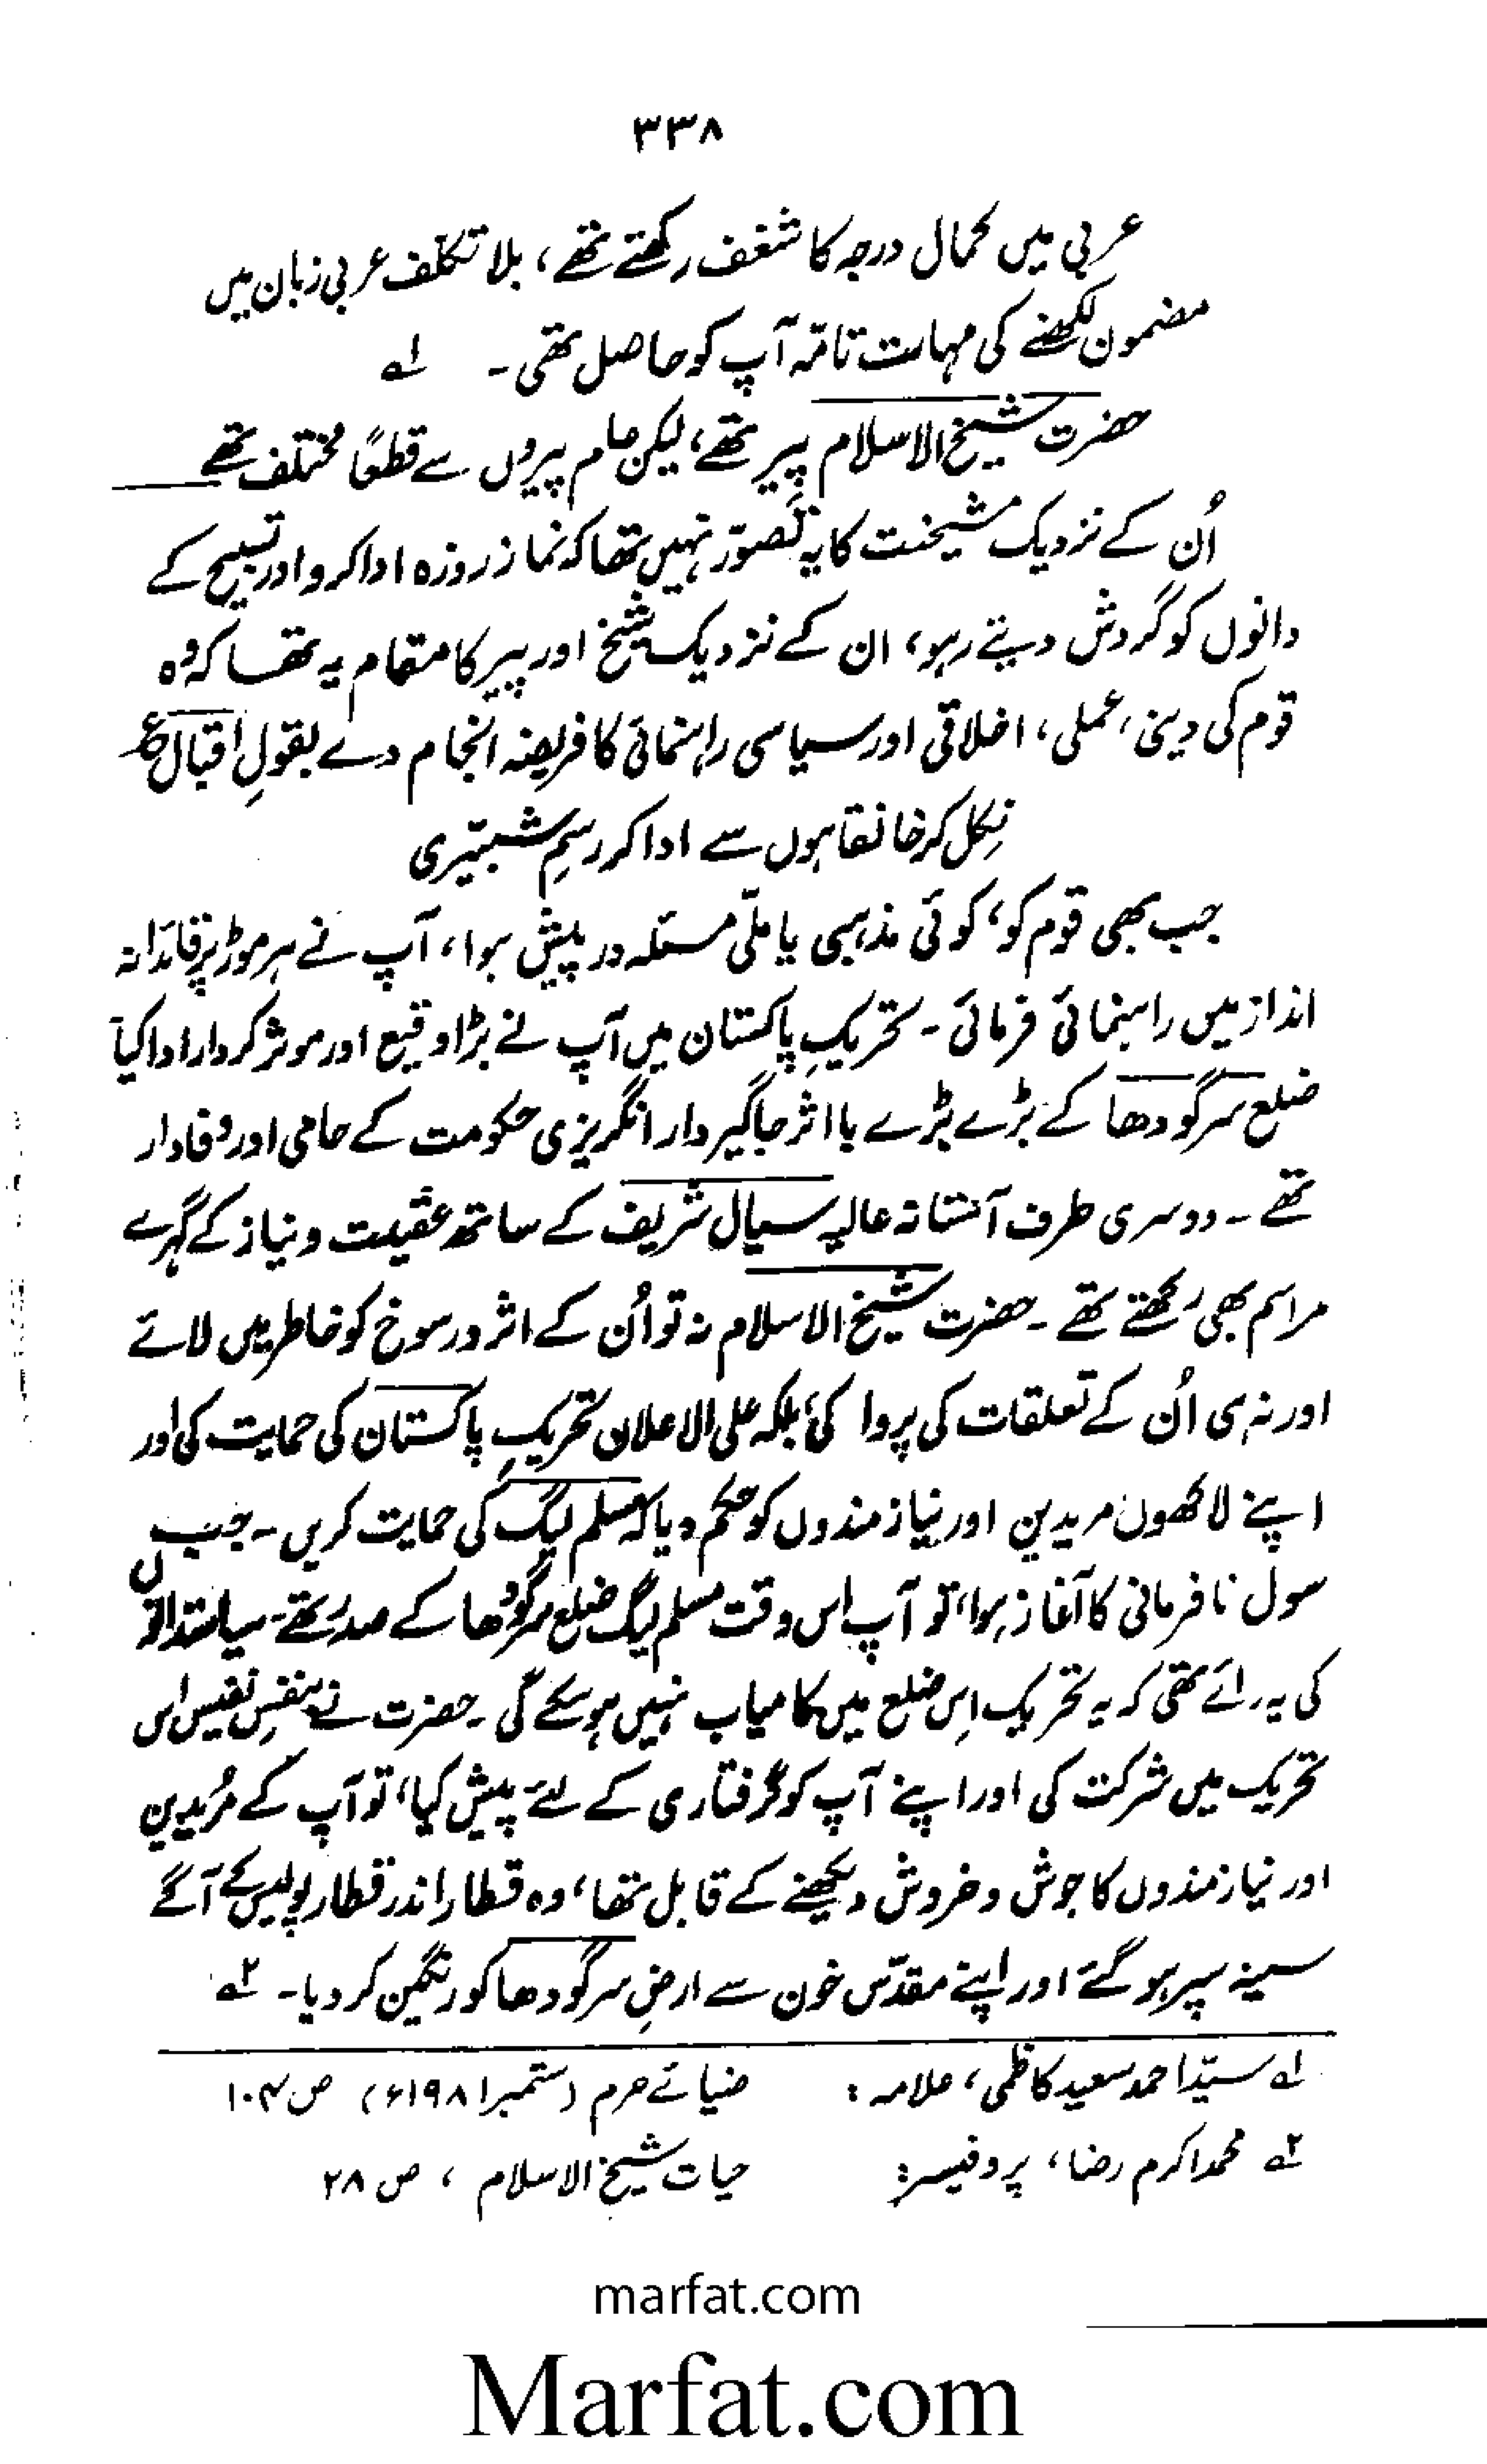 ۳۳۸
عربی میں کمال درجہ کا شغف رکھتے تھے، بلا تکلف عربی زبان میں
مضمون لکھنے کی مہارت تامّہ آپ کو حاصل تھی۔ ۱؎
حضرت شیخ الاسلام پیر تھے، لیکن عام پیروں سے قطعًا مختلف تھے
اُن کے نزدیک مشیخت کا یہ تصوّر نہیں تھا کہ نماز روزہ ادا کرو اور تسبیح کے
دانوں کو گردش دیتے رہو، ان کے نزدیک شیخ اور پیر کا مقام یہ تھا کہ وہ
قوم کی دینی، عملی، اخلاقی اور سیاسی راہنمائی کا فریضہ انجام دے بقولِ اقبال ؏
نِکل کر خانقاہوں سے ادا کر رسمِ شبیّری
جب بھی قوم کو، کوئی مذہبی یا ملّی مسئلہ در پیش ہوا، آپ نے ہر موڑ پر قائدانہ
انداز میں راہنمائی فرمائی۔ تحریکِ پاکستان میں آپ نے بڑا وقیع اور موثر کردار ادا کیا
ضلع سرگودھا کے بڑے بڑے با اثر جاگیردار انگریزی حکومت کے حامی اور وفادار
تھے۔ دوسری طرف آستانہ عالیہ سیال شریف کے ساتھ عقیدت و نیاز کے گہرے
مراسم بھی رکھتے تھے۔ حضرت شیخ الاسلام نہ تو اُن کے اثر و رسوخ کو خاطر میں لائے
اور نہ ہی اُن کے تعلقات کی پروا کی، بلکہ علی الاعلان تحریکِ پاکستان کی حمایت کی اور
اپنے لاکھوں مریدین اور نیاز مندوں کو حکم دیا کہ مسلم لیگ کی حمایت کریں۔ جب
سول نافرمانی کا آغاز ہوا، تو آپ اس وقت مسلم لیگ ضلع سرگودھا کے صدر تھے۔ سیاستدانوں
کی یہ رائے تھی کہ یہ تحریک اِس ضلع میں کامیاب نہیں ہو سکے گی۔ حضرت نے بنفسِ نفیس اس
تحریک میں شرکت کی اور اپنے آپ کو گرفتاری کے لئے پیش کیا، تو آپ کے مُریدین
اور نیاز مندوں کا جوش و خروش دیکھنے کے قابل تھا، وہ قطار اندر قطار پولیس کے آگے
سینہ سپر ہو گئے اور اپنے مقدّس خون سے ارضِ سرگودھا کو رنگین کر دیا۔ ۲؎
۱؎ سیّد احمد سعید کاظمی، علامہ: ضیائے حرم (ستمبر ۱۹۸۱ء) ص ۱۰۴
۲؎ محمد اکرم رضا، پروفیسر: حیات شیخ الاسلام ، ص ۲۸
marfat.com
Marfat.com